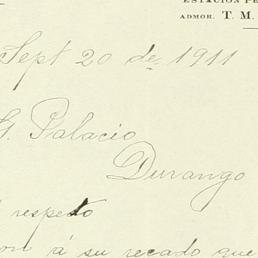 ADMOR. T. M.
Sept 20 de 1911
G. Palacio
Durango
respeto
á su recado que